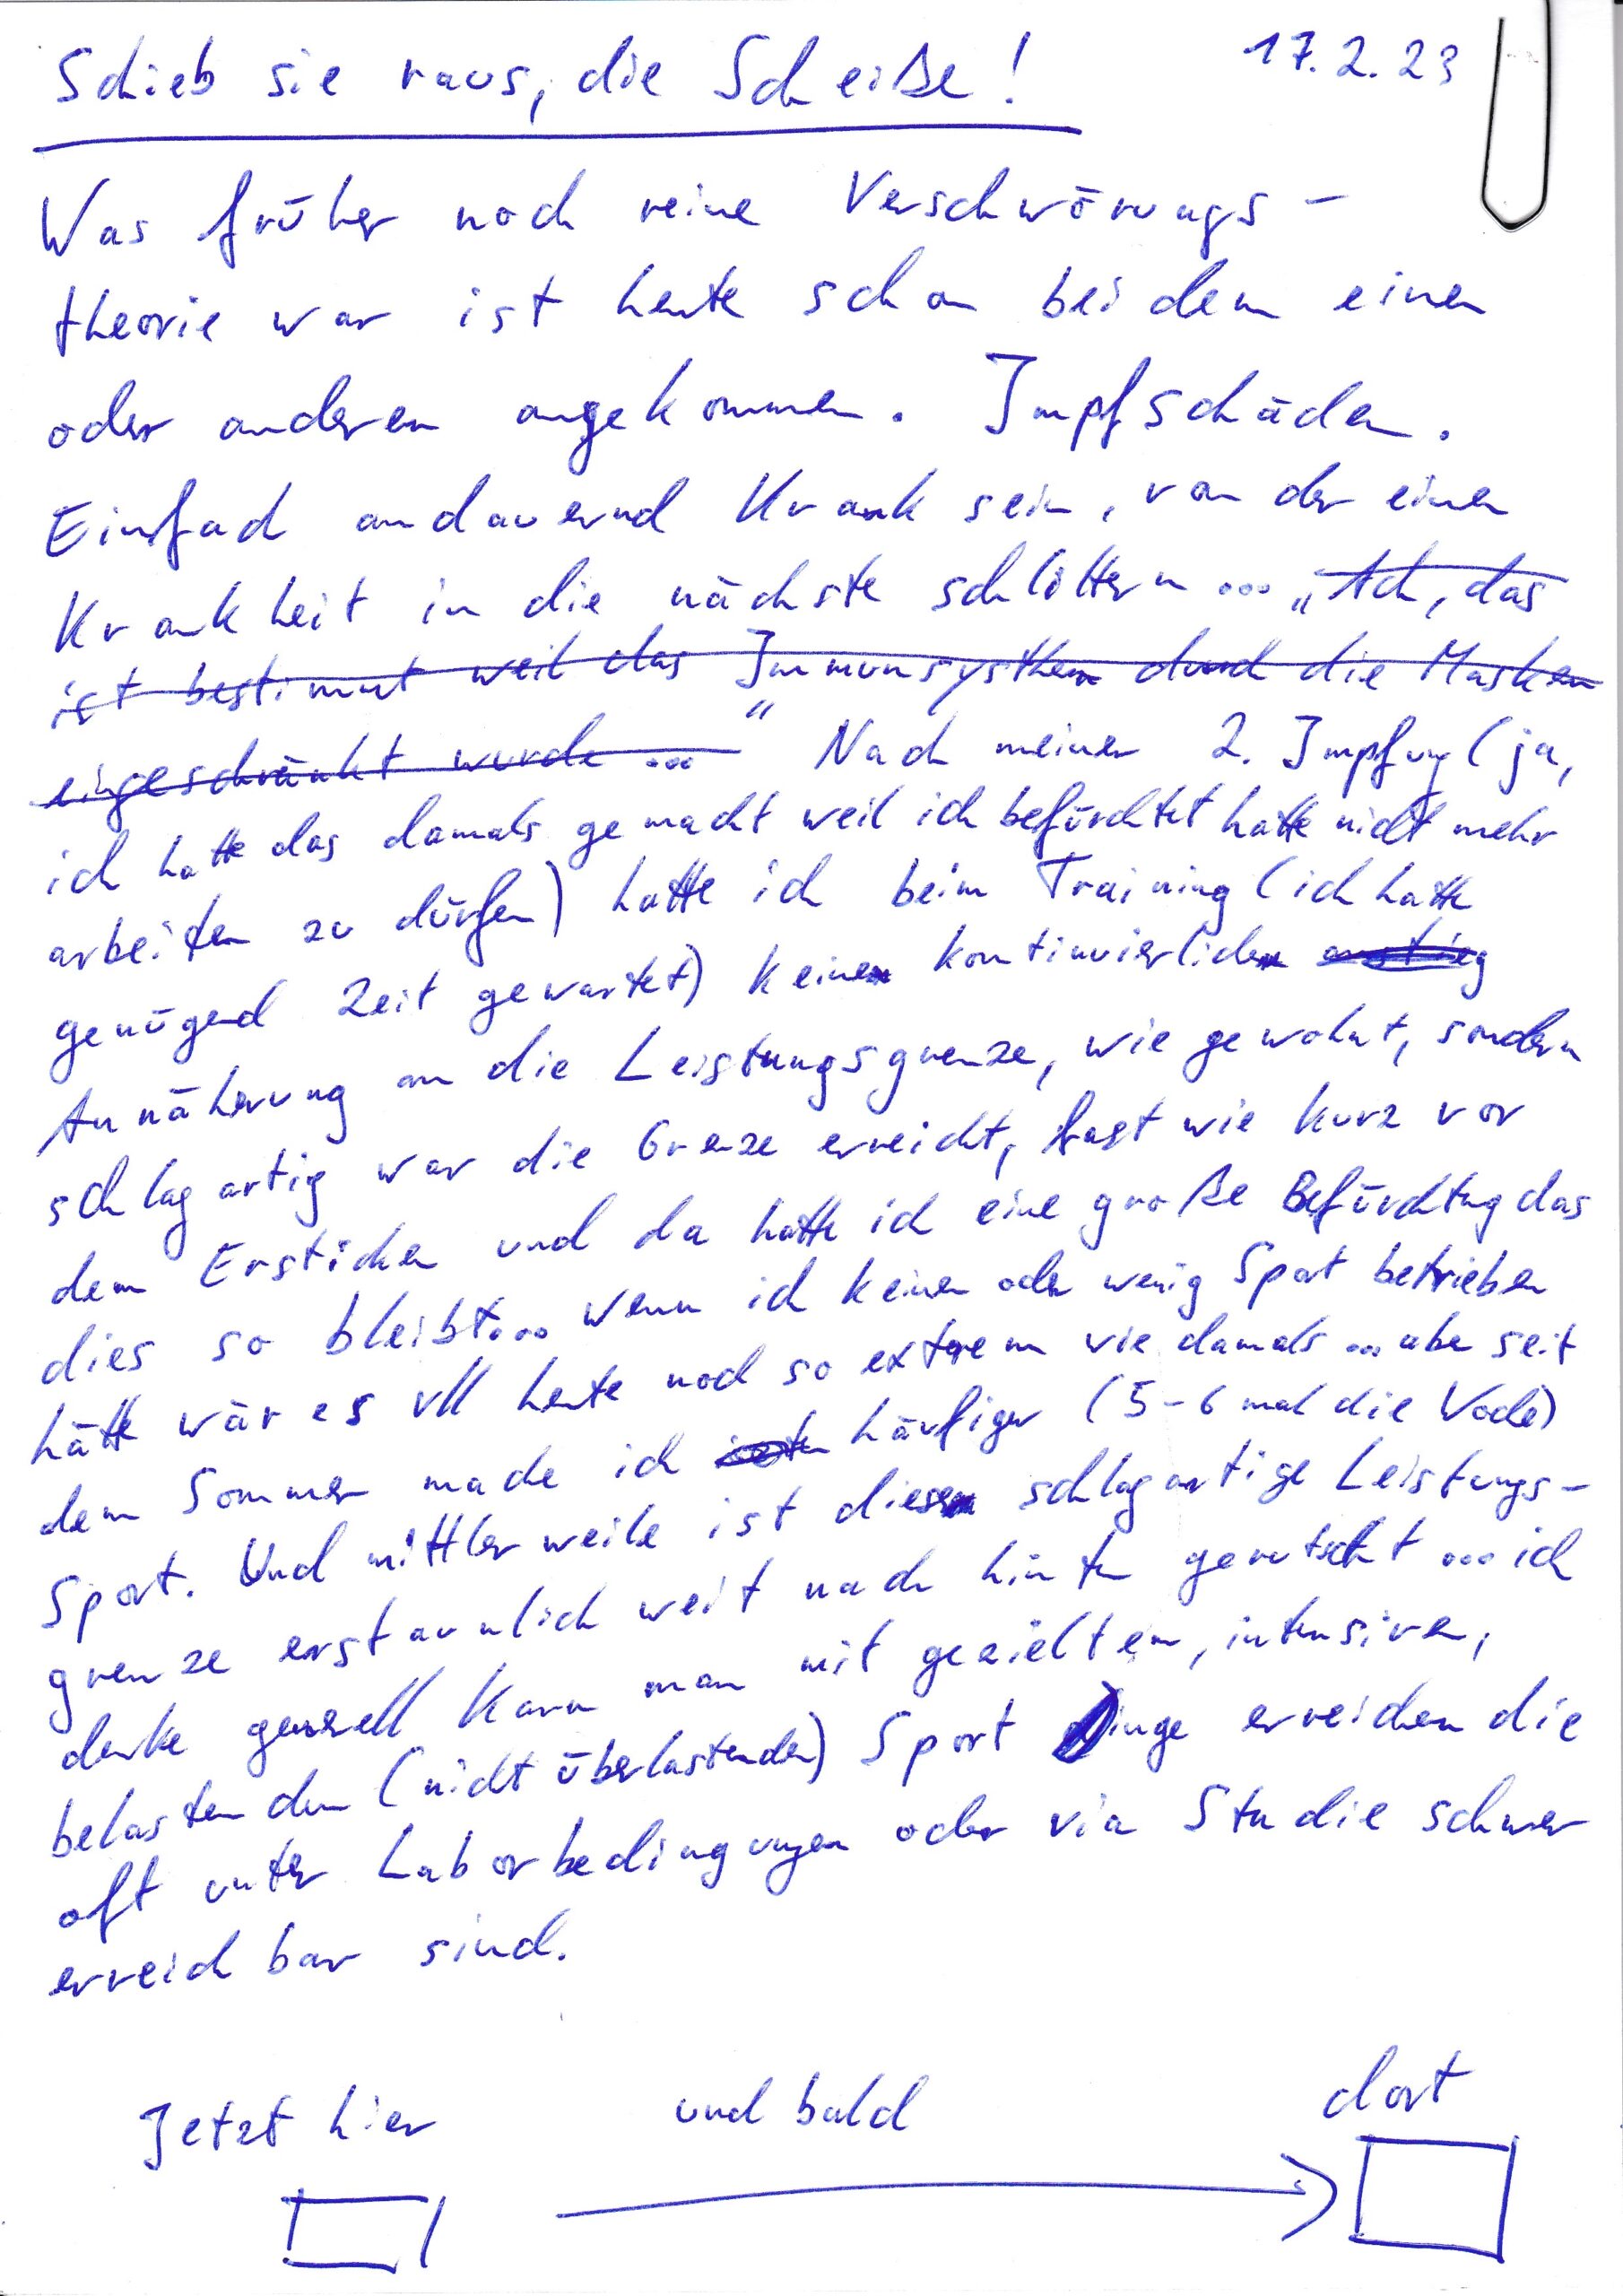 Schieb sie raus, die Scheiße! 17.2.23
Was früher noch reine Verschwörungs-
theorie war ist heute schon bei dem einen
oder anderen angekommen. Impfschäden.
Einfach andauernd Krank sein, von der einen
Krankheit in die nächste schlittern ... „Ach, das
ist bestimmt weil das Immunsysthem durch die Masken
eingeschränkt wurde ..." Nach meiner 2. Impfung (ja,
ich hatte das damals gemacht weil ich befürchtet hatte nicht mehr
arbeiten zu dürfen) hatte ich beim Training (ich hatte
genügend Zeit gewartet) keine kontinuierliche anstieg
Annäherung an die Leistungsgrenze, wie gewohnt, sondern
schlagartig war die Grenze erreicht, fast wie kurz vor
dem Ersticken und da hatte ich eine große Befürchtug das
dies so bleibt... wenn ich keinen oder wenig Sport betrieben
hätte wär es vll heute noch so extrem wie damals ... aber seit
dem Sommer mache ich häufiger (5-6 mal die Woche)
Sport. Und mittlerweile ist diese schlagartige Leistungs-
grenze erstaunlich weit nach hinten gerutscht ... ich
denke generell kann man mit gezieltem, intensiven,
belastenden (nicht überlastenden) Sport Dinge erreichen die
oft unter Laborbedingungen oder via Studie schwer
erreichbar sind.
Jetzt hier und bald dort